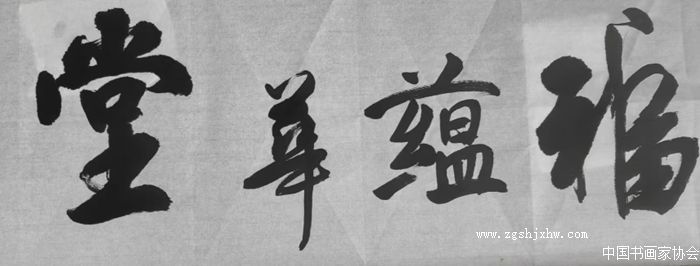 福蕴华堂
www.zgshjxhw.com
中国书画家协会